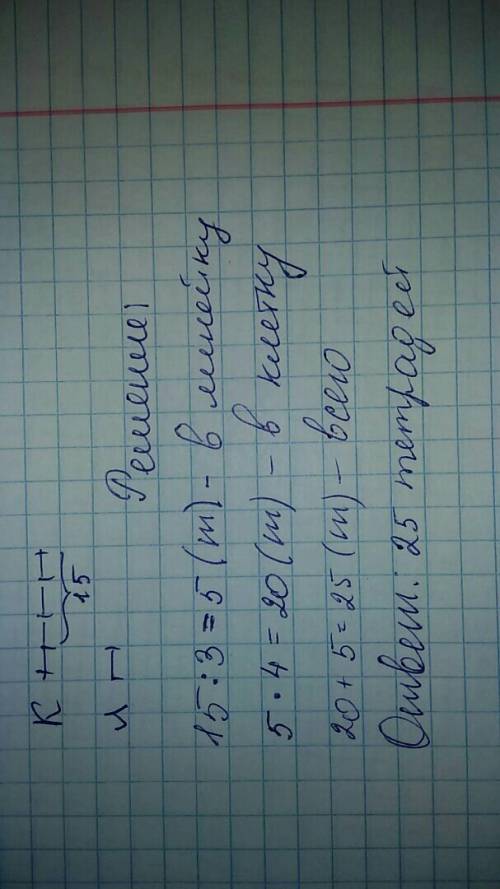 К
15
Л
Решение:
15:3=5 (т) - в линейку
5·4=20 (т) - в клетку
20+5=25 (т) - всего
Ответ: 25 тетрадей